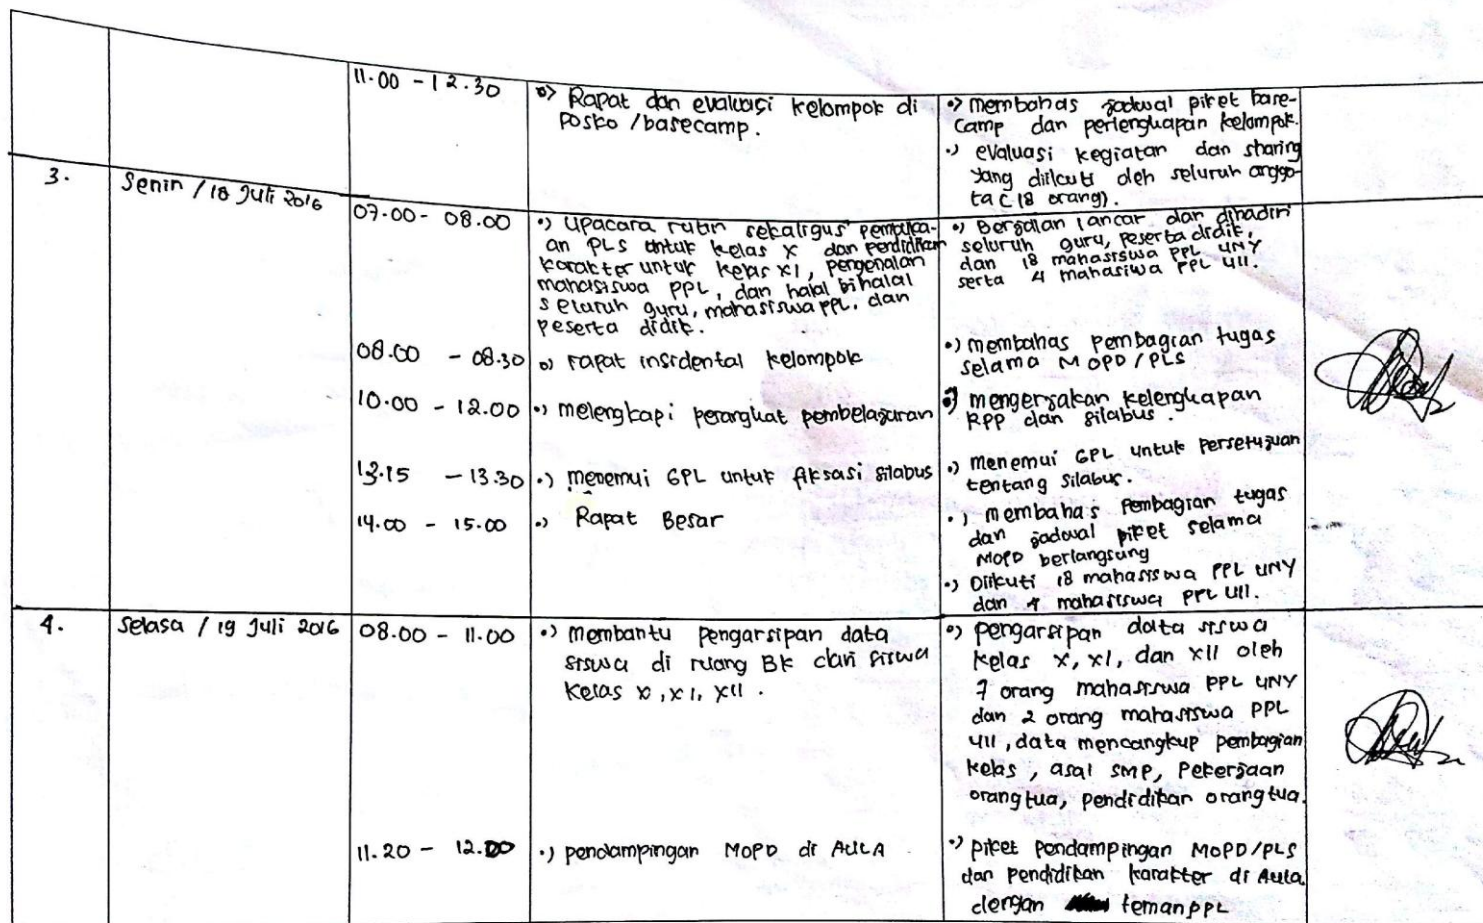 11.00 - 12.30
•) Rapat dan evaluasi kelompok di
posko / basecamp.
•) membahas jadwal piket base-
camp dan perlengkapan kelompok.
•) evaluasi kegiatan dan sharing
yang diikuti oleh seluruh anggo-
ta (18 orang).
3.
Senin / 18 Juli 2016
07.00 - 08.00
•) Upacara rutin sekaligus pembuka-
an PLS untuk kelas X dan pendidikan
karakter untuk kelas XI, pengenalan
mahasiswa PPL, dan halal bihalal
seluruh guru, mahasiswa PPL, dan
peserta didik.
•) Berjalan lancar dan dihadiri
seluruh guru, peserta didik,
dan 18 mahasiswa PPL UNY
serta 4 mahasiwa PPL UII.
08.00 - 08.30
•) rapat insidental kelompok
•) membahas pembagian tugas
selama MOPD/PLS
10.00 - 12.00
•) melengkapi perangkat pembelajaran
•) mengerjakan kelengkapan
RPP dan silabus.
13.15 - 13.30
•) menemui GPL untuk fiksasi silabus
•) menemui GPL untuk persetujuan
tentang silabus.
14.00 - 15.00
•) Rapat Besar
•) membahas pembagian tugas
dan jadwal piket selama
MOPD berlangsung
•) Diikuti 18 mahasiswa PPL UNY
dan 4 mahasiswa PPL UII.
4.
Selasa / 19 Juli 2016
08.00 - 11.00
•) membantu pengarsipan data
siswa di ruang BK dari siswa
kelas X, XI, XII.
•) pengarsipan data siswa
kelas X, XI, dan XII oleh
7 orang mahasiswa PPL UNY
dan 2 orang mahasiswa PPL
UII, data mencangkup pembagian
kelas, asal SMP, Pekerjaan
orangtua, pendidikan orangtua.
11.20 - 12.00
•) pendampingan MOPD di AULA
•) piket pendampingan MOPD/PLS
dan pendidikan karakter di Aula
dengan teman PPL